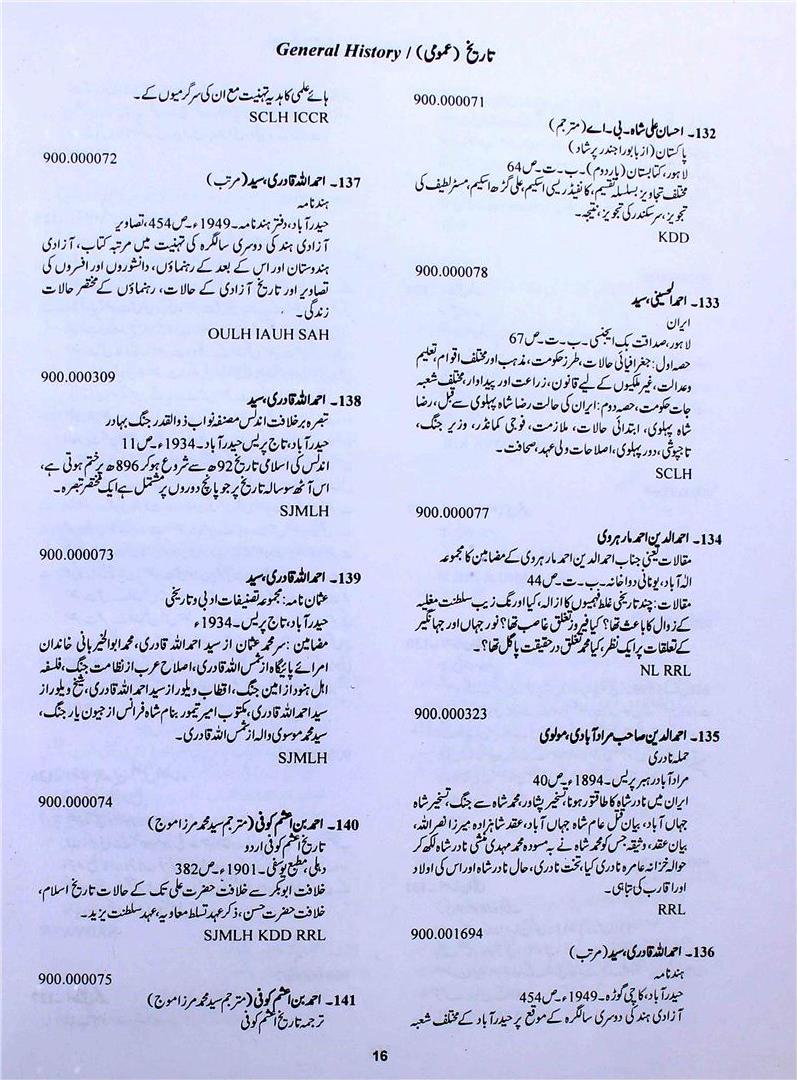 تاریخ (عمومی) / General History
900.000071
132۔ احسان علی شاہ۔ بی۔ اے (مترجم)
پاکستان (از بابو راجندر پرشاد)
لاہور، کتابستان (بار دوم)۔ ب۔ ت۔ ص 64
مختلف تجاویز بسلسلہ تقسیم، کانفیڈریسی اسکیم، علی گڑھ اسکیم، مسٹر لطیف کی
تجویز، سر سکندر کی تجویز، نتیجہ۔
KDD
900.000078
133۔ احمد الحسینی، سید
ایران
لاہور، صداقت بک ایجنسی۔ ب۔ ت۔ ص 67
حصہ اول: جغرافیائی حالات، طرز حکومت، مذہب اور مختلف اقوام، تعلیم
و عدالت، غیر ملکیوں کے لیے قانون، زراعت اور پیداوار، مختلف شعبہ
جات حکومت، حصہ دوم: ایران کی حالت رضا شاہ پہلوی سے قبل، رضا
شاہ پہلوی، ابتدائی حالات، ملازمت، فوجی کمانڈر، وزیر جنگ،
تاجپوشی، دور پہلوی، اصلاحات ولی عہد، صحافت۔
SCLH
900.000077
134۔ احمد الدین احمد مارہروی
مقالات یعنی جناب احمد الدین احمد مارہروی کے مضامین کا مجموعہ
الہ آباد، یونانی دواخانہ۔ ب۔ ت۔ ص 44
مقالات: چند تاریخی غلط فہمیوں کا ازالہ، کیا اورنگ زیب سلطنت مغلیہ
کے زوال کا باعث تھا؟ کیا فیروز تغلق غاصب تھا؟ نور جہاں اور جہانگیر
کے تعلقات پر ایک نظر، کیا محمد تغلق در حقیقت پاگل تھا؟۔
NL RRL
900.000323
135۔ احمد الدین صاحب مراد آبادی، مولوی
حملہ نادری
مراد آباد رہبر پریس۔ 1894ء۔ ص 40
ایران میں نادر شاہ کا طاقتور ہونا، تسخیر پشاور، محمد شاہ سے جنگ، تسخیر شاہ
جہاں آباد، بیان قتل عام شاہ جہاں آباد، عقد شاہزادہ میرزا نصر اللہ،
بیان عقد، وثیقہ جس کو محمد شاہ نے بہ مسودہ محمد مہدی منشی نادر شاہ لکھ کر
حوالہ خزانہ عامرہ نادری کیا، تخت نادری، حال نادر شاہ اور اس کی اولاد
اور اقارب کی تباہی۔
RRL
900.001694
136۔ احمد اللہ قادری، سید (مرتب)
ہند نامہ
حیدرآباد، کاچی گوڑہ۔ 1949ء۔ ص 454
آزادی ہند کی دوسری سالگرہ کے موقع پر حیدر آباد کے مختلف شعبہ
ہائے علمی کا ہدیہ تہنیت مع ان کی سرگرمیوں کے۔
SCLH ICCR
900.000072
137۔ احمد اللہ قادری، سید (مرتب)
ہند نامہ
حیدرآباد، دفتر ہند نامہ۔ 1949ء۔ ص 454، تصاویر
آزادی ہند کی دوسری سالگرہ کی تہنیت میں مرتبہ کتاب، آزادی
ہندوستان اور اس کے بعد کے رہنماؤں، دانشوروں اور افسروں کی
تصاویر اور تاریخ آزادی کے حالات، رہنماؤں کے مختصر حالات
زندگی۔
OULH IAUH SAH
900.000309
138۔ احمد اللہ قادری، سید
تبصرہ بر خلافت اندلس مصنفہ نواب ذوالقدر جنگ بہادر
حیدرآباد، تاج پریس حیدرآباد۔ 1934ء۔ ص 11
اندلس کی اسلامی تاریخ 92ھ سے شروع ہو کر 896ھ پر ختم ہوتی ہے،
اس آٹھ سو سالہ تاریخ پر جو پانچ دوروں پر مشتمل ہے ایک مختصر تبصرہ۔
SJMLH
900.000073
139۔ احمد اللہ قادری، سید
عثمان نامہ: مجموعہ تصنیفات ادبی و تاریخی
حیدرآباد، تاج پریس۔ 1934ء
مضامین: سر محمد عثمان از سید احمد اللہ قادری، محمد ابوالخیر بانی خاندان
امرائے پائیگاہ از شمس اللہ قادری، اصلاح عرب از نظامت جنگ، فلسفہ
اہل ہنود از امین جنگ، اقطاب ویلور از سید احمد اللہ قادری، شیخ ویلور از
سید احمد اللہ قادری، مکتوب امیر تیمور بنام شاہ فرانس از جیون یار جنگ،
سید محمد موسوی والہ از شمس اللہ قادری۔
SJMLH
900.000074
140۔ احمد بن اعثم کوفی (مترجم سید محمد مرزا موج)
تاریخ اعثم کوفی اردو
دہلی، مطبع یوسفی۔ 1901ء۔ ص 382
خلافت ابوبکر سے خلافت حضرت علی تک کے حالات تاریخ اسلام،
خلافت حضرت حسن، ذکر عہد تسلط معاویہ، عہد سلطنت یزید۔
SJMLH KDD RRL
900.000075
141۔ احمد بن اعثم کوفی (مترجم سید محمد مرزا موج)
ترجمہ تاریخ اعثم کوفی
16